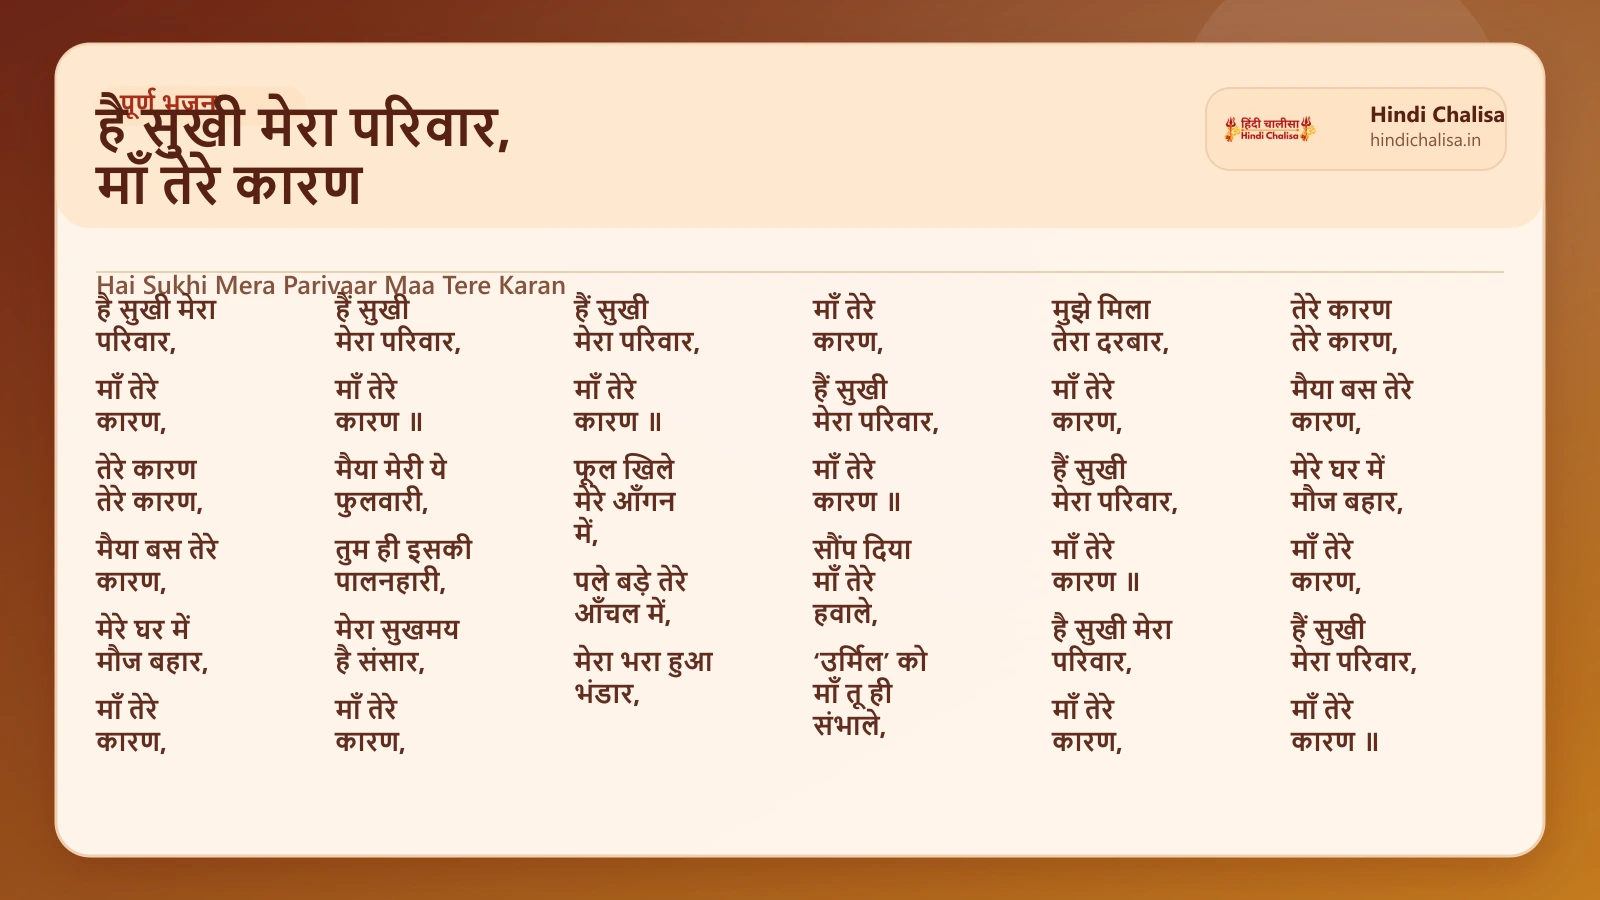 पूर्ण भजन
है सुखी मेरा परिवार,
माँ तेरे कारण
हिंदी चालीसा
Hindi Chalisa
Hindi Chalisa
hindichalisa.in
Hai Sukhi Mera Parivaar Maa Tere Karan
है सुखी मेरा
परिवार,
माँ तेरे
कारण,
तेरे कारण
तेरे कारण,
मैया बस तेरे
कारण,
मेरे घर में
मौज बहार,
माँ तेरे
कारण,
हैं सुखी
मेरा परिवार,
माँ तेरे
कारण ॥
मैया मेरी ये
फुलवारी,
तुम ही इसकी
पालनहारी,
मेरा सुखमय
है संसार,
माँ तेरे
कारण,
हैं सुखी
मेरा परिवार,
माँ तेरे
कारण ॥
फूल खिले
मेरे आँगन
में,
पले बड़े तेरे
आँचल में,
मेरा भरा हुआ
भंडार,
माँ तेरे
कारण,
हैं सुखी
मेरा परिवार,
माँ तेरे
कारण ॥
सौंप दिया
माँ तेरे
हवाले,
‘उर्मिल’ को
माँ तू ही
संभाले,
मुझे मिला
तेरा दरबार,
माँ तेरे
कारण,
हैं सुखी
मेरा परिवार,
माँ तेरे
कारण ॥
है सुखी मेरा
परिवार,
माँ तेरे
कारण,
तेरे कारण
तेरे कारण,
मैया बस तेरे
कारण,
मेरे घर में
मौज बहार,
माँ तेरे
कारण,
हैं सुखी
मेरा परिवार,
माँ तेरे
कारण ॥